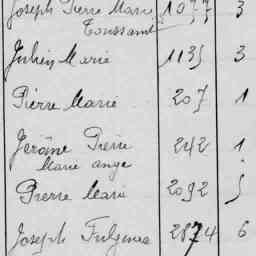 Joseph Pierre Marie 1077 3
Toussaint
Julien Marie 1135 3
Pierre Marie 207 1
Jérôme Pierre 242 1
Marie ange
Pierre Marie 2092 5
Joseph Fulgence 2874 6